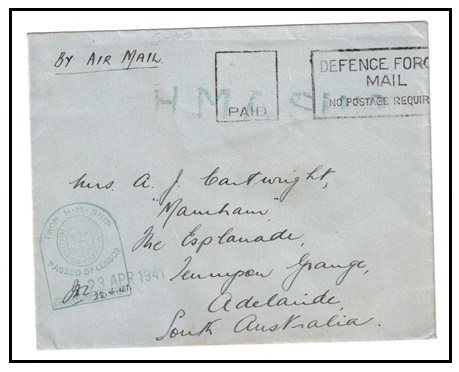 BY AIR MAIL
PAID
DEFENCE FORC
MAIL
NO POSTAGE REQUIR
H.M.A. SHIPS
Mrs. A. J. Cartwright,
"Mamham"
The Esplanade,
Tennyson Grange,
Adelaide,
South Australia.
FROM H.M. SHIP
PASSED BY CENSOR
23 APR 1941